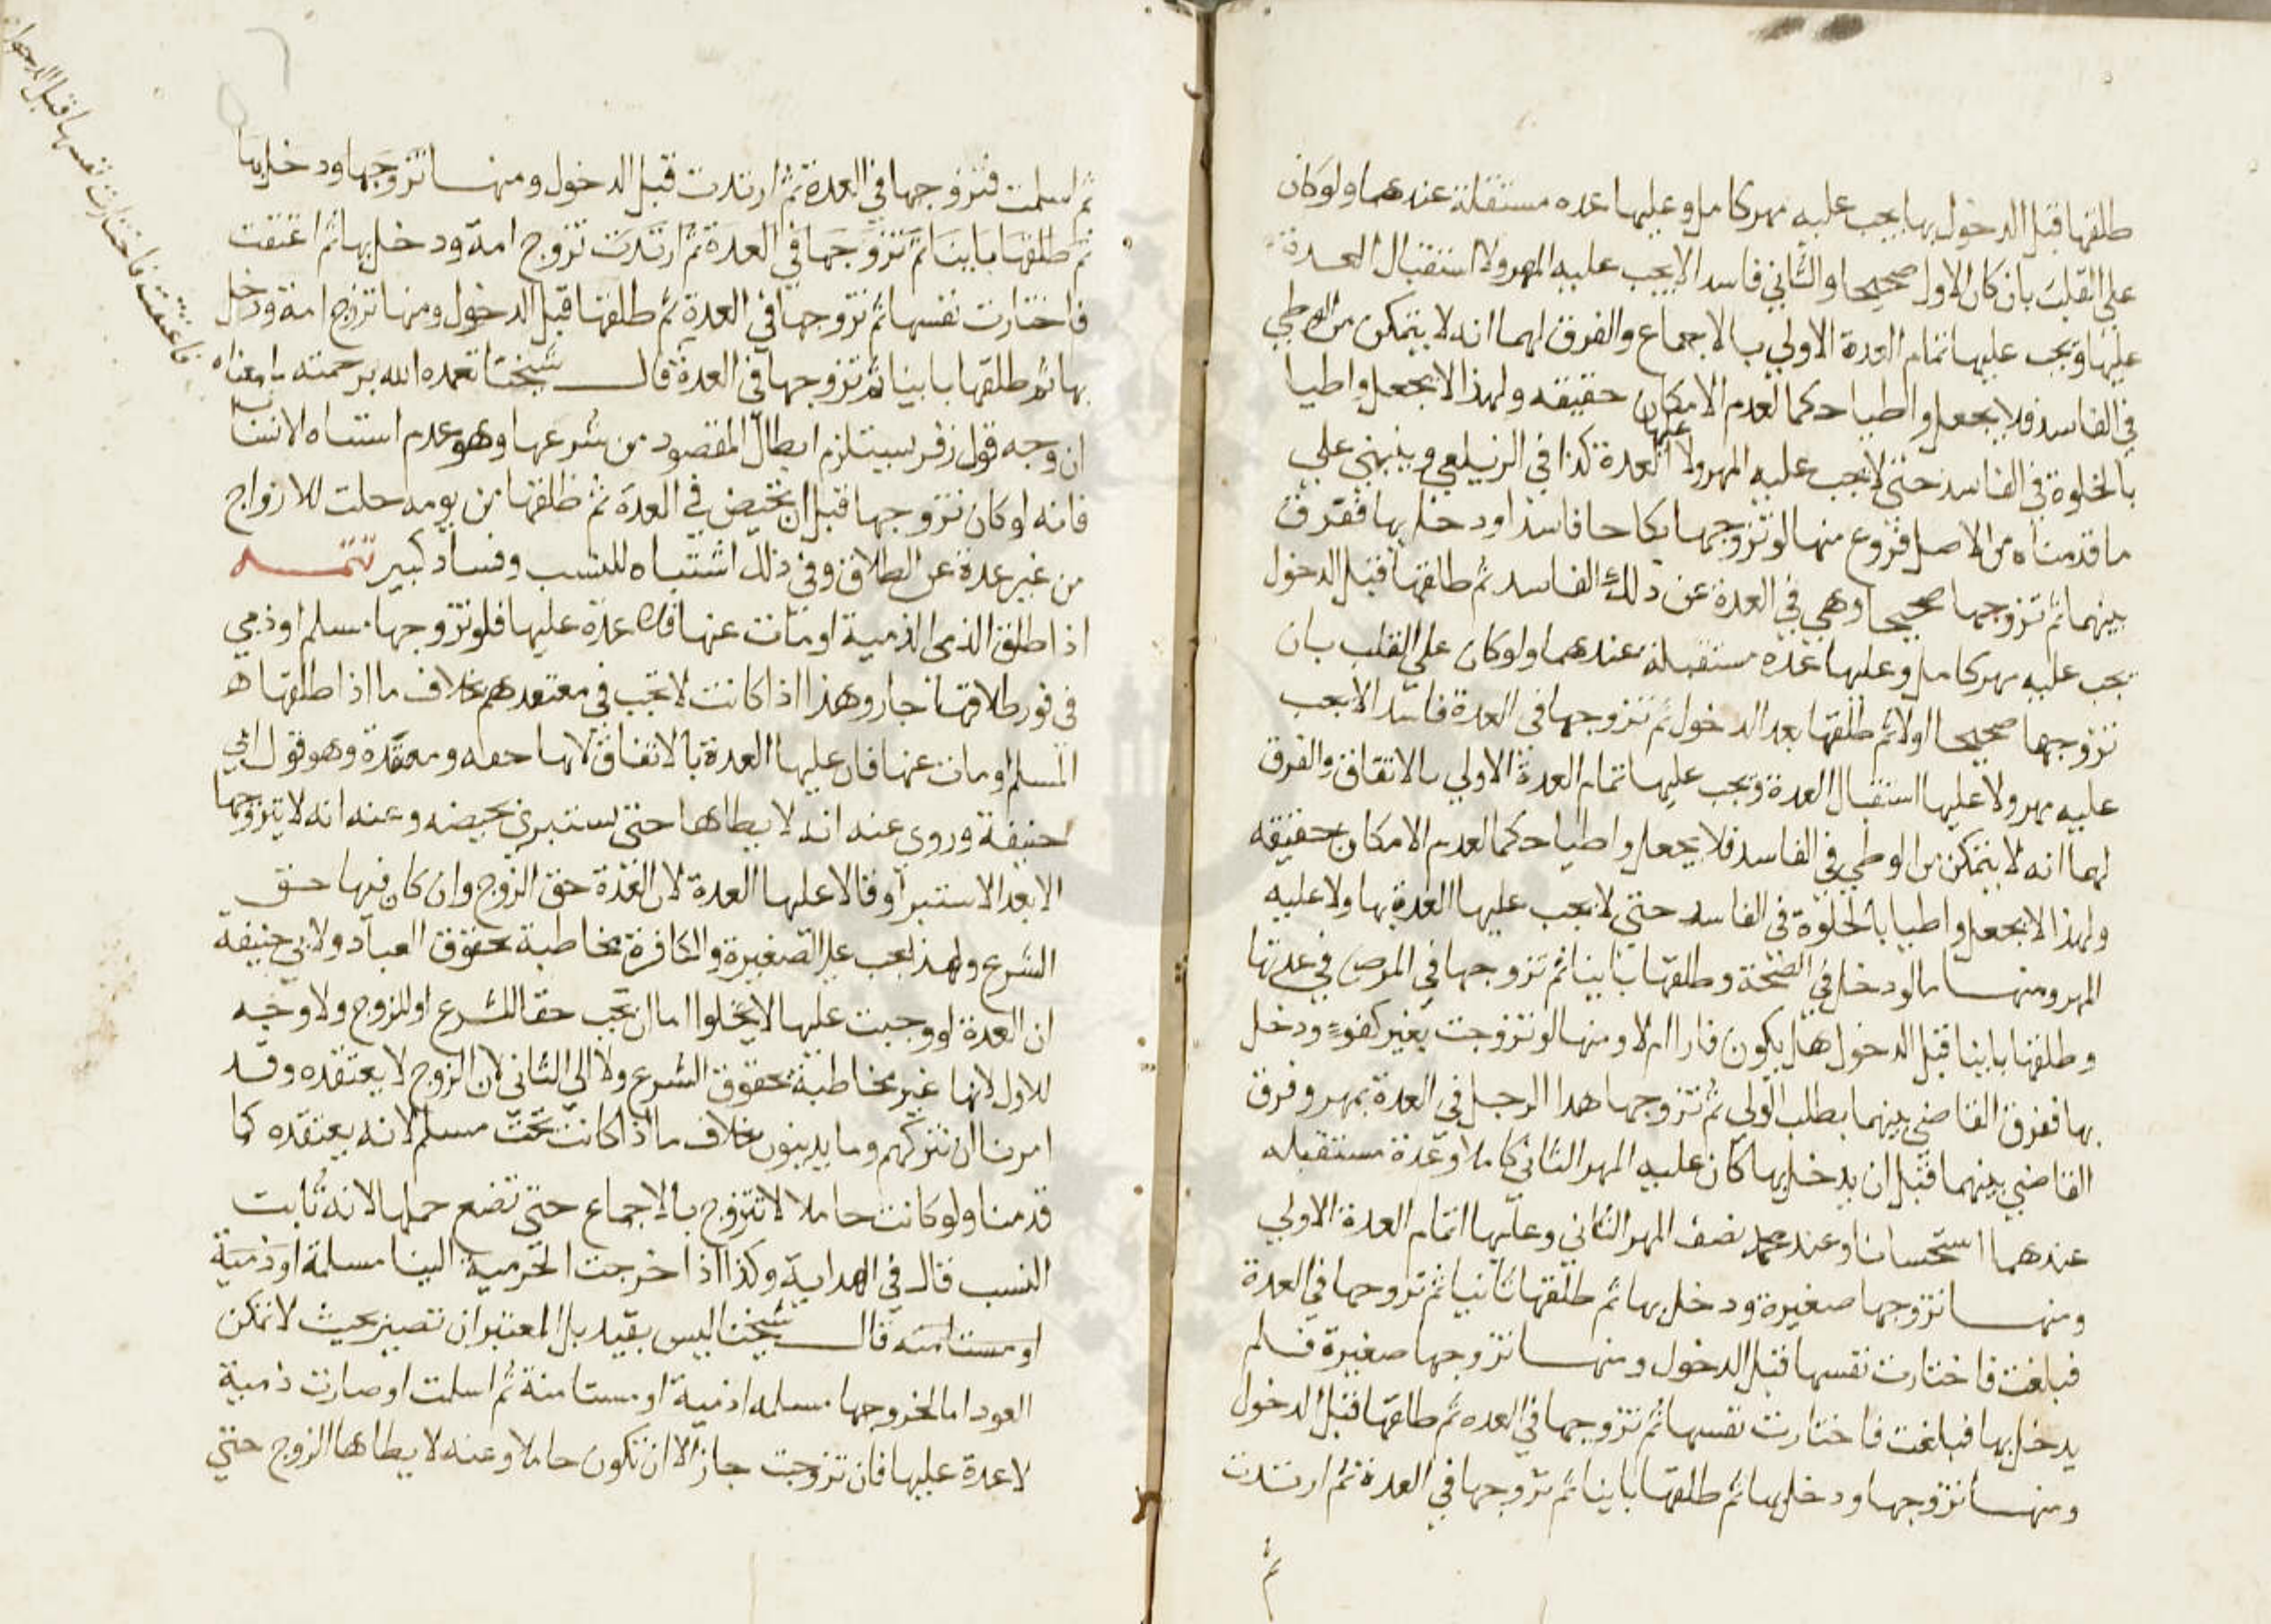 طلقها قبل الدخول بها يجب عليه مهر كامل وعليها عده مستقلة عندهما ولو كان
على القلب بان كان الاول صحيحا والثاني فاسدا لا يجب عليه المهر ولا استقبال العدة
عليها ويجب عليها تمام العدة الاولي بالاجماع والفرق لهما انه لا يتمكن من الوطي
في الفاسد فلا يجعل واطيا حكما لعدم الامكان حقيقه ولهذا لا يجعل واطيا
بالخلوة في الفاسد حتى لا يجب عليه المهر ولا عليها العدة كذا في الزيلعي وينبني على
ما قدمناه من الاصل فروع منها لو تزوجها نكاحا فاسدا ودخل بها ففرق
بينهما ثم تزوجها صحيحا وهي في العدة عن ذلك الفاسد ثم طلقها قبل الدخول
يجب عليه مهر كامل وعليها عده مستقبلة عندهما ولو كان على القلب بان
تزوجها صحيحا اولا ثم طلقها بعد الدخول ثم تزوجها في العدة فاسدا لا يجب
عليه مهر ولا عليها استقبال العدة ويجب عليها تمام العدة الاولي بالاتفاق والفرق
لهما انه لا يتمكن من الوطي في الفاسد فلا يجعل واطيا حكما لعدم الامكان حقيقه
ولهذا لا يجعل واطيا بالخلوة في الفاسد حتى لا يجب عليها العدة بها ولا عليه
المهر ومنها ما لو دخل في الصحة وطلقها باينا ثم تزوجها في المرض في عدتها
وطلقها باينا قبل الدخول هل يكون فارا ام لا ومنها لو تزوجت بغير كفوء ودخل
بها ففرق القاضي بينهما بطلب الولي ثم تزوجها هدا الرجل في العدة بمهر وفرق
القاضي بينهما قبل ان يدخل بها كان عليه المهر الثاني كاملا وعدة مستقبله
عندهما استحسانا وعند محمد نصف المهر الثاني وعليها اتمام العدة الاولي
ومنها تزوجها صغيرة ودخل بها ثم طلقها ثانيا ثم تزوجها في العدة
فبلغت فاختارت نفسها قبل الدخول ومنها تزوجها صغيرة فلم
يدخل بها فبلغت فاختارت نفسها ثم تزوجها في العده ثم طلقها قبل الدخول
ومنها تزوجها ودخل بها ثم طلقها باينا ثم تزوجها في العدة ثم ارتدت
ثم
ثم اسلمت فتزوجها في العدة ثم ارتدت قبل الدخول ومنها تزوجها ودخل بها
ثم طلقها باينا ثم تزوجها في العدة ثم ارتدت تزوج امة ودخل بها ثم اعتقت
فاختارت نفسها ثم تزوجها في العدة ثم طلقها قبل الدخول ومنها تزوج امة ودخل
بها ثم طلقها باينا ثم تزوجها في العدة قال شيخنا تغمده الله برحمته
فاعتقت فاختارت نفسها قبل الدخول
ان وجه قول زفر يستلزم ابطال المقصود من شرعها وهو عدم اشتباه الانساب
فانه لو كان تزوجها قبل ان تحيض في العدة ثم طلقها من يومه حلت للازواج
من غير عدة عن الطلاق وفي ذلك اشتباه للنسب وفساد كبير تتمه
اذا طلق الذمي الذمية او مات عنها فلا عدة عليها فلو تزوجها مسلم او ذمي
في فور طلاقها جاز وهذا اذا كانت لا تجب في معتقدهم بخلاف ما اذا طلقها ه
المسلم او مات عنها فان عليها العدة بالاتفاق لانها حقه ومعتقده وهو قول ابي
حنيفة وروي عنه انه لا يطاها حتى يستبري بحيضه وعنه انه لا يتزوجها
الا بعد الاستبرا وقالا عليها العدة لان العدة حق الزوج وان كان فيها حق
الشرع ولهذا تجب على الصغيرة والكافرة مخاطبة بحقوق العباد ولابي حنيفة
ان العدة لو وجبت عليها لا يخلوا اما ان تجب حقا للشرع او للزوج ولا وجه
للاول لانها غير مخاطبة بحقوق الشرع ولا الى الثاني لان الزوج لا يعتقده وقد
امرنا ان نتركهم وما يدينون بخلاف ما اذا كانت تحت مسلم لانه يعتقده كما
قدمنا ولو كانت حاملا لا تتزوج بالاجماع حتى تضع حملها لانه ثابت
النسب قال في الهداية وكذا اذا خرجت الحربية الينا مسلمة او ذمية
او مستامنه قال شيخنا ليس بقيد بل المعتبر ان تصير بحيث لا تمكن
العود اما لخروجها مسلمه او ذمية او مستامنة ثم اسلمت او صارت ذمية
لا عدة عليها فان تزوجت جاز الا ان تكون حاملا وعنه لا يطاها الزوج حتى